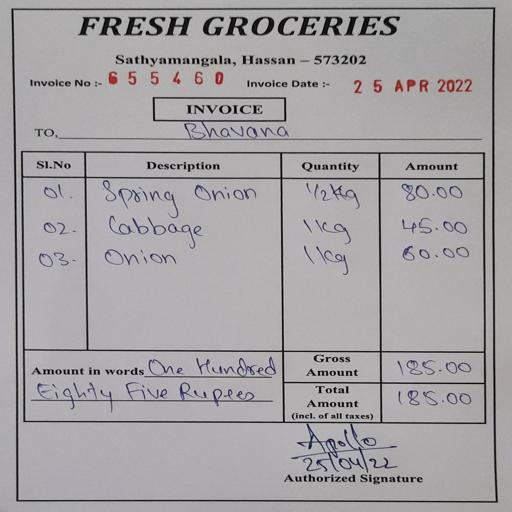 FRESH GROCERIES
Sathyamangala, Hassan – 573202
Invoice No :- 655460 Invoice Date :- 25 APR 2022
INVOICE
TO, Bhavana
Sl.No Description Quantity Amount
01. Spring Onion 1/2 kg 80.00
02. Cabbage 1 kg 45.00
03. Onion 1 kg 60.00
Amount in words One Hundred Eighty Five Rupees
Gross Amount 185.00
Total Amount (incl. of all taxes) 185.00
Apollo
25/04/22
Authorized Signature